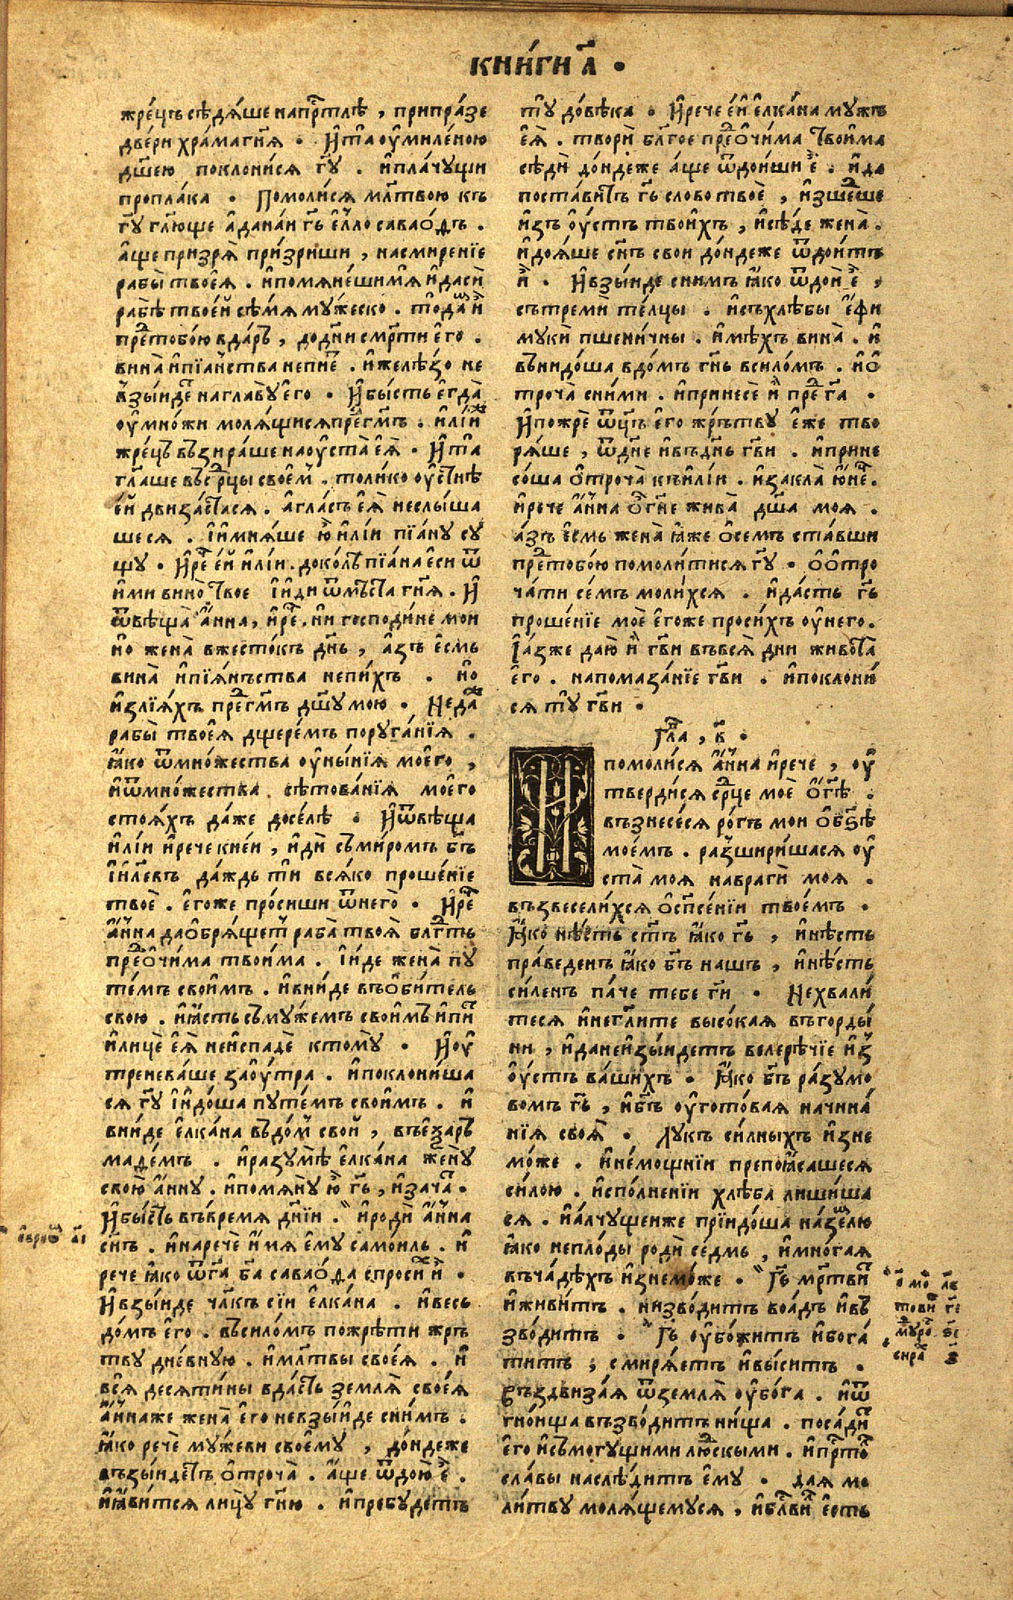 кни́ги а҃ .
жре́цъ сѣдѧ́ше напрⷭ҇тлѣ , припра́зе
две́ри хра́ма гнѧ҃ . И҆ та̀ ᲂу҆миле́ною
дш҃ею поклони́сѧ гꙋ҃ . и҆пла́чꙋщи
пропла́ка . Помоли́сѧ мл҃твою къ
гꙋ҃ гл҃юще а҆дана́и гь҃ е҆лѡ саваѡ́дъ .
а҆́ще призрѧ̀ при́зриши , насмире́нїе
рабы̀ твоеѧ̀ . и҆помѧне́ши мѧ̀ и҆дасѝ
рабѣ̀ твое́й сѣ́мѧ мꙋ́жеско . то̀дамъ и҆̀
преⷣтобо́ю вда́ръ , доднѝ смр҃ти е҆го̀ .
вина̀ и҆пїѧ́нства непїе́тъ . и҆желѣ́зо не
взы́идетъ наглавꙋ̀ е҆го̀ . И҆бы́сть е҆гда̀
ᲂу҆мно́жи молѧ́щисѧ преⷣгмъ҃ . и҆лі́и же
жре́цъ възира́ше наᲂу҆ста̀ е҆ѧ̀ . И҆ та̀
гл҃аше въсрⷣцы свое́мъ . то́лико ᲂу҆стнѣ̀
е҆́й дви́застасѧ . а҆гла́съ е҆ѧ̀ неслы́ша
шесѧ . и҆ мнѧ́ше ю҆̀ и҆лі́и пїа́нꙋ сꙋ
щꙋ . И҆реⷱ҇ е҆́й и҆лі́и . доко́лѣ пїа́на е҆сѝ ѿ
и҆ми вино̀ твоѐ и҆ идѝ ѿмѣ́ста гнѧ҃ . И҆
ѿвѣща̀ а҆́нна , и҆реⷱ҇ . ни господи́не мои
но жена̀ вже́стокъ днь҃ , а҆́зъ е҆́смь
вина̀ и҆пїѧ́нъства непи́хъ . но
и҆злїѧ́хъ преⷣгмъ҃ дш҃ꙋ мою . Неда́жⷣь
рабы̀ твоеѧ̀ дще́ремъ порꙋга́нїѧ .
ꙗ҆́ко ѿмно́жества ᲂу҆ны́нїѧ моего̀ ,
и҆ѿмно́жества сѣ́тованїѧ моего̀
стоѧ́хъ да́же досе́лѣ . И҆ѿвѣща̀
и҆лі́и и҆рече кне́и , и҆дѝ съми́ромъ бг҃ъ
і҆и҃левъ да́ждь ти всѧ́ко проше́нїе
твоѐ . е҆гоже про́сиши ѿнего̀ . И҆реⷱ҇
а҆́нна даѡ҆брѧ́щетъ раба̀ твоѧ̀ блгⷣть
преⷣѻ҆чи́ма твои́ма . І҆и́де жена̀ пꙋ
те́мъ свои́мъ . и҆вни́де въѻ҆би́тель
свою . и҆ꙗ҆́сть съмꙋ́жемъ свои́мъ и҆пи́тъ
и҆лицѐ е҆ѧ̀ неиспадѐ ктомꙋ̀ . И҆ᲂу҆
треневаше заᲂу҆́тра . и҆поклони́ша
сѧ гꙋ҃ и҆ идо́ша пꙋте́мъ свои́мъ . и҆
вни́де е҆лка́на въдо́мъ свой , въе҆ꙁа́ръ
маде́мъ . и҆разꙋмѣ̀ е҆лка́на женꙋ̀
свою̀ а҆́ннꙋ . и҆помѧнꙋ̀ ю҆̀ гь҃ , и҆зача́тъ .
И҆бы́сть въвремѧ дні҃и . и҆родѝ а҆́нна
снъ҃ . и҆наречѐ и҆́мѧ е҆мꙋ самои́ль . и҆
рече ꙗ҆́ко ѿга҃ ба҃ саваѡ́да спроси́хъ и҆̀ .
И҆взы́иде чл҃къ сїи е҆лка́на . и҆весь
до́мъ е҆го̀ . въсило́мъ пожрѣ́ти жрѣ
твꙋ дне́внꙋю . и҆мл҃твы своеѧ̀ . и҆
всѧ̀ десѧти́ны вда́сть землѧ̀ своеѧ̀
а҆́ннаже жена̀ е҆го̀ невзы́иде сни́мъ .
ꙗ҆́ко речѐ мꙋ́жеви своемꙋ̀ , до́ндеже
възы́идетъ ѻ҆троча̀ . а҆́ще ѿдою̀ е҆̀ .
и҆ꙗ҆ви́тсѧ лицꙋ̀ гню҃ . и҆пребꙋ́детъ
тꙋ̀ до́вѣка . И҆рече е҆́й е҆лка́на мꙋжъ
е҆ѧ̀ . творѝ блг҃ое преⷣѻ҆чи́ма твои́ма
сѣдѝ до́ндеже а҆́ще ѿдо́иши е҆̀ . и҆да
поста́витъ гь҃ слово твоѐ , и҆зше́дшее
и҆зъ ᲂу҆́стъ твои́хъ , и҆сѣ́де жена̀ .
и҆доѧ́ше снъ҃ свои до́ндеже ѿдои́тъ
и҆̀ . И҆взы́иде снимъ ꙗ҆́ко ѿдоѝ е҆̀ ,
сътреми те́лцы . и҆съхлѣ́бы и҆е҆́фи
мꙋкѝ пшени́чны . и҆мѣ́хъ вина̀ . и҆
въни́доша вдо́мъ гнь҃ всило́мъ . и҆ѻ҆
троча̀ сни́ми . и҆принесѐ и҆̀ преⷣга҃ .
И҆пожрѐ ѿц҃ъ е҆го̀ жрѣ́твꙋ е҆́же тво
рѧ́ше , ѿдне҃ и҆въднь҃ гв҃и . и҆прине
со́ша ѻ҆троча̀ къи҆лі́и . и҆закла̀ ю҆не́ц .
и҆рече а҆́нна ѻ҆ гн҃е жива̀ дш҃а моѧ .
а҆́зъ е҆смь жена̀ ꙗ҆́же ѻ҆семъ ста́вши
преⷣтобо́ю помоли́тисѧ гꙋ҃ . ѻ҆ѻ҆тро
ча́ти се́мъ моли́хсѧ . и҆да́сть гь҃
проше́нїе моѐ е҆гоже проси́хъ ᲂу҆него .
І҆а́зже даю̀ и҆̀ гв҃и въвсѧ̀ дни живота̀
е҆го . напомаза́нїе гв҃и . и҆поклони́
сѧ тꙋ гв҃и .
Гла҃ , в҃ .
И҆помоли́сѧ а҆́нна и҆рече , ᲂу҆
тверди́сѧ срⷣце моѐ ѻ҆ гѣ҃ .
възнесе́сѧ ро́гъ мои ѻ҆бѕѣ҃
мое́мъ . разшири́шасѧ ᲂу҆
ста̀ моѧ набрагѝ моѧ .
възвесели́хсѧ ѻ҆спⷭ҇е́нїи твое́мъ .
Ꙗ҆́ко нѣ́сть стъ҃ ꙗ҆́ко гь҃ , и҆нѣ́сть
пра́веденъ ꙗ҆́ко бг҃ъ нашъ , и҆нѣ́сть
си́ленъ па́че тебе гн҃ . Нехвали́
тесѧ и҆негл҃ите высо́каѧ въго́рды
ни , и҆данеи҆зы́идетъ велерѣ́чїе и҆з̾
ᲂу҆́стъ ва́шихъ . Ꙗ҆́ко бг҃ъ ра́зꙋмо
вомъ гь҃ , и҆бг҃ъ ᲂу҆гото́ваѧ начина́
нїѧ своѧ̀ . Лꙋкъ си́лныхъ и҆зне
мо́же . и҆не́мощнїи препоꙗ҆́сашесѧ
си́лою . и҆спо́лненїи хлѣ́ба лиши́ша
сѧ . и҆а҆́лчꙋщеиже прїидо́ша на́землю
ꙗ҆́ко непло́ды родѝ седмь , и҆мно́гаѧ
въча́дѣхъ и҆знемо́же . Гь҃ мр҃тви́тъ
и҆живи́тъ . низво́дитъ воа́дъ и҆въ
зво́дитъ . Гь҃ ᲂу҆бо́житъ и҆бога
ти́тъ , смирѧ́етъ и҆вы́ситъ .
Въздвиза́ѧ ѿземлѧ̀ ᲂу҆бо́га . и҆ѿ
гно́ища възво́дитъ ни́ща . посади́ти
е҆го̀ и҆съмогꙋ́щими люⷣскыми . и҆прⷭ҇то́лъ
сла́вы наслѣ́дитъ е҆мꙋ̀ . даѧ мо
ли́твꙋ молѧ́щемꙋсѧ , и҆блгⷭ҇ви́лъ е҆́сть